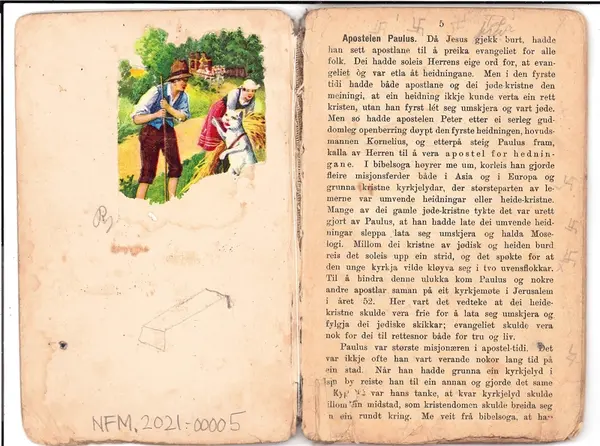 NFM.2021-00005
5
Apostelen Paulus. Då Jesus gjekk burt, hadde
han sett apostlane til å preika evangeliet for alle
folk. Dei hadde soleis Herrens eige ord for, at evan-
geliet òg var etla åt heidningane. Men i den fyrste
tidi hadde både apostlane og dei jøde-kristne den
meiningi, at ein heidning ikkje kunde verta ein rett
kristen, utan han fyrst lét seg umskjera og vart jøde.
Men so hadde apostelen Peter etter ei serleg gud-
domleg openberring døypt den fyrste heidningen, hovuds-
mannen Kornelius, og etterpå steig Paulus fram,
kalla av Herren til å vera apostel for hedning-
ane. I bibelsoga høyrer me um, korleis han gjorde
fleire misjonsferder både i Asia og i Europa og
grunna kristne kyrkjelydar, der størsteparten av le-
merne var umvende heidningar eller heide-kristne.
Mange av dei gamle jøde-kristne tykte det var urett
gjort av Paulus, at han hadde late dei umvende heid-
ningar sleppa lata seg umskjera og halda Mose-
logi. Millom dei kristne av jødisk og heiden burd
reis det soleis upp ein strid, og det spøkte for at
den unge kyrkja vilde kløyva seg i tvo uvensflokkar.
Til å hindra denne ulukka kom Paulus og nokre
andre apostlar saman på eit kyrkjemøte i Jerusalem
i året 52. Her vart det vedteke at dei heide-
kristne skulde vera frie for å lata seg umskjera og
fylgja dei jødiske skikkar; evangeliet skulde vera
nok for dei til rettesnor både for tru og liv.
Paulus var største misjonæren i apostel-tidi. Det
var ikkje ofte han vart verande nokor lang tid på
ein stad. Når han hadde grunna ein kyrkjelyd i
ein by reiste han til ein annan og gjorde det same
var hans tanke, at kvar kyrkjelyd skulde
ein midstad, som kristendomen skulde breida seg
ein rundt kring. Me veit frå bibelsoga, at ha